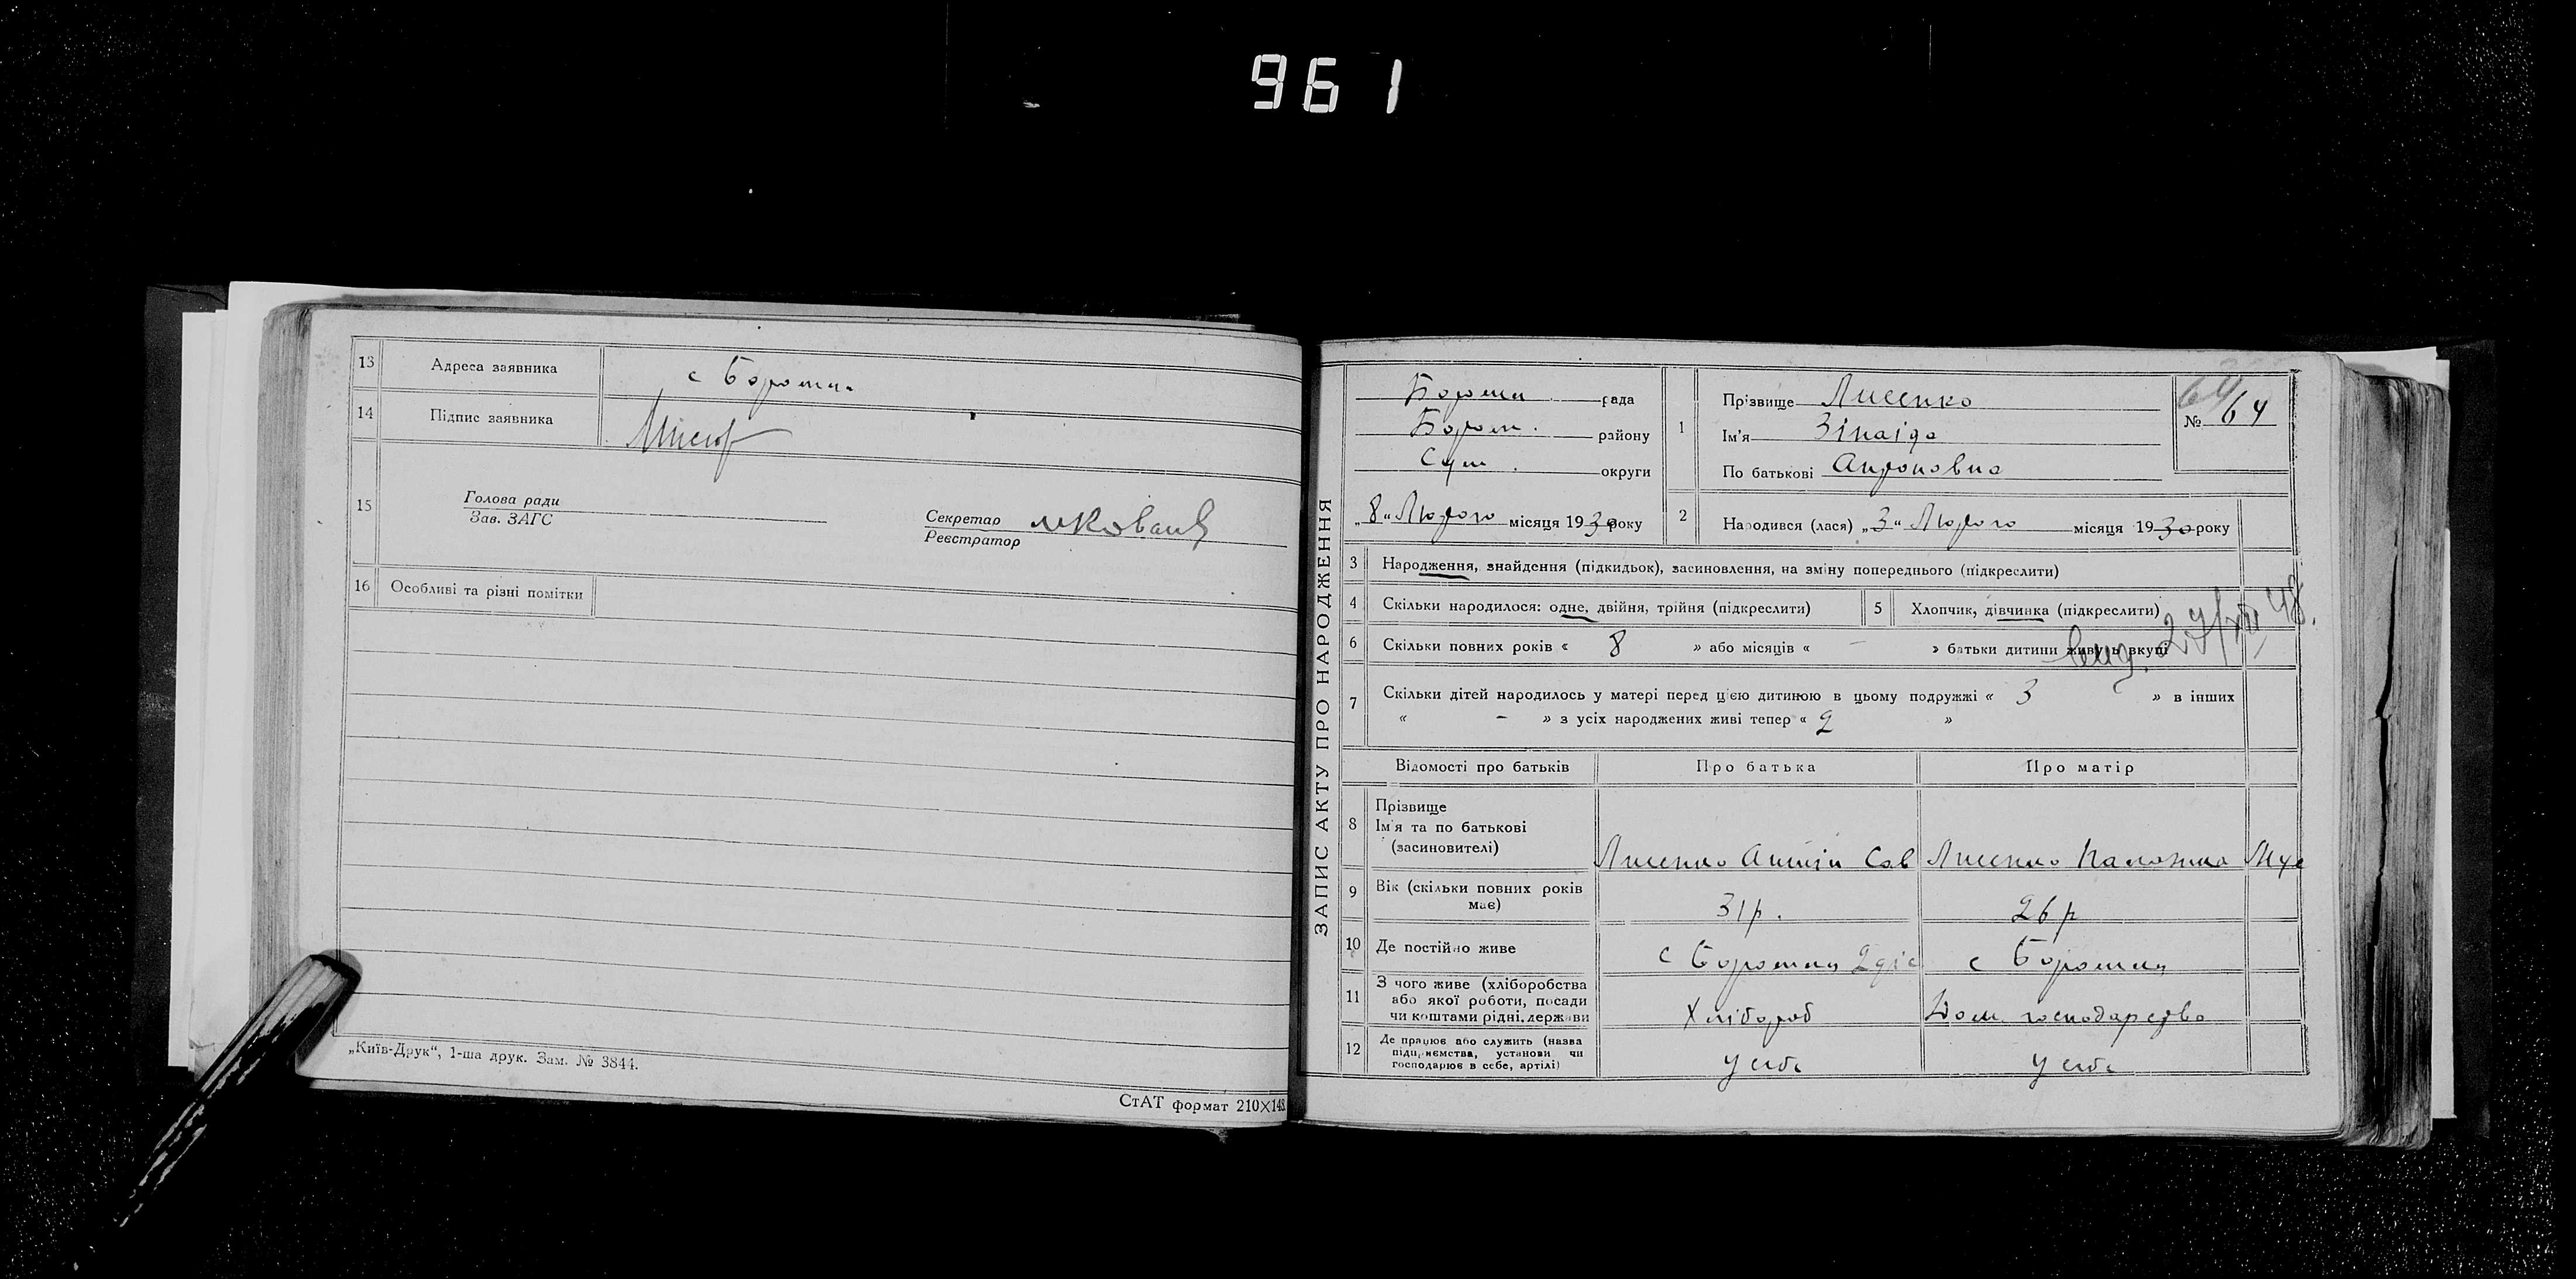 961
13 Адреса заявника с Боромля
14 Підпис заявника
15 Голова ради
Зав. ЗАГС
Секретар
Реєстратор
16 Особливі та різні помітки
„Київ-Друк“, 1-ша друк. Зам. № 3844.
СтАТ формат 210×148.
ЗАПИС АКТУ ПРО НАРОДЖЕННЯ
Боромл. рада
Боромл. району
Сум. округи
„8“ Лютого місяця 1930 року
1 Прізвище Лисенко
Ім'я Зінаіда
По батькові
№ 64
2 Народився (лася) „3“ Лютого місяця 1930 року
3 Народження, знайдення (підкидьок), засиновлення, на зміну попереднього (підкреслити)
4 Скільки народилося: одне, двійня, трійня (підкреслити)
5 Хлопчик, дівчинка (підкреслити)
6 Скільки повних років « 8 » або місяців « – » батьки дитини живуть вкупі
7 Скільки дітей народилось у матері перед цією дитиною в цьому подружжі « 3 » в інших
« – » з усіх народжених живі тепер « 2 »
Відомості про батьків Про батька Про матір
8 Прізвище
Ім'я та по батькові
(засиновителі)
Лисенко Сав Лисенко
9 Вік (скільки повних років
має)
31 р. 26 р
10 Де постійно живе с Боромля с Боромля
11 З чого живе (хліборобства
або якої роботи, посади
чи коштами рідні, держави
Хлібороб Дом. господарство
12 Де працює або служить (назва
підприємства, установи чи
господарює в себе, артілі)
У себе У себе